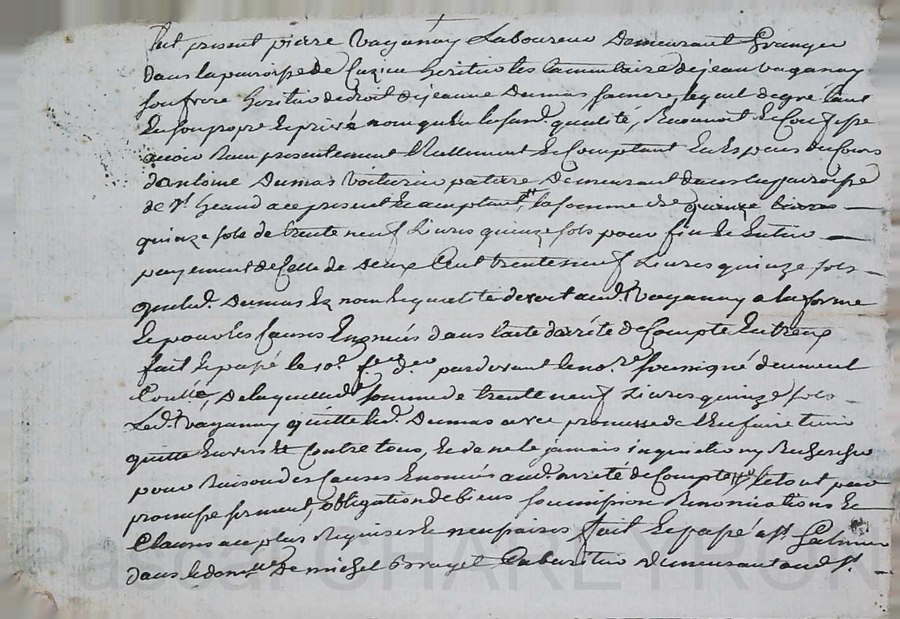 fut present pierre Vaganay Laboureur Demeurant Granger
dans la parroisse de Cuzieu heritier testamentaire de jean vaganay
son frere heritier de droit de jeanne Dumas sa mere, lequel de gré tant
En son propre Et privé nom qu'en la susd. qualité, Reconnoit Et Confesse
avoir Reçu presentement Reellement Et Comptant En Especes du Cours
d'antoine Dumas Voiturier par terre Demeurant dans la parroisse
de St. heand ace present Et acceptant, la somme de quinze livres
quinze sols de trente neuf Livres quinze sols pour fin Et Entier
payement de Celle de Deux Cent trente neuf Livres quinze sols
que led. Dumas Es nom Et qualité devoit aud. Vaganay a la forme
Et pour les Causes Enoncés dans l'acte d'arrété de Compte Entreux
fait Et passé le 10e. pardevant le no.re soussigné duement
Conllé, De laquelle de. somme de trente neuf Livres quinze sols
Led. Vaganay quitte led. Dumas avec promesse de l'En faire tenir
quitte Envers Et Contre tous, Et de ne le jamais inquieter ny Rechercher
pour Raison des Causes Enoncés aud. arrété de Compte, Le tout par
promesse serment, obligation de biens soumission Renonciations Et
Clauses au plus Requises Et necessaires fait Et passé a St. Galmier
dans le dom.lle De michel Cabaretier Demeurant aud. St.